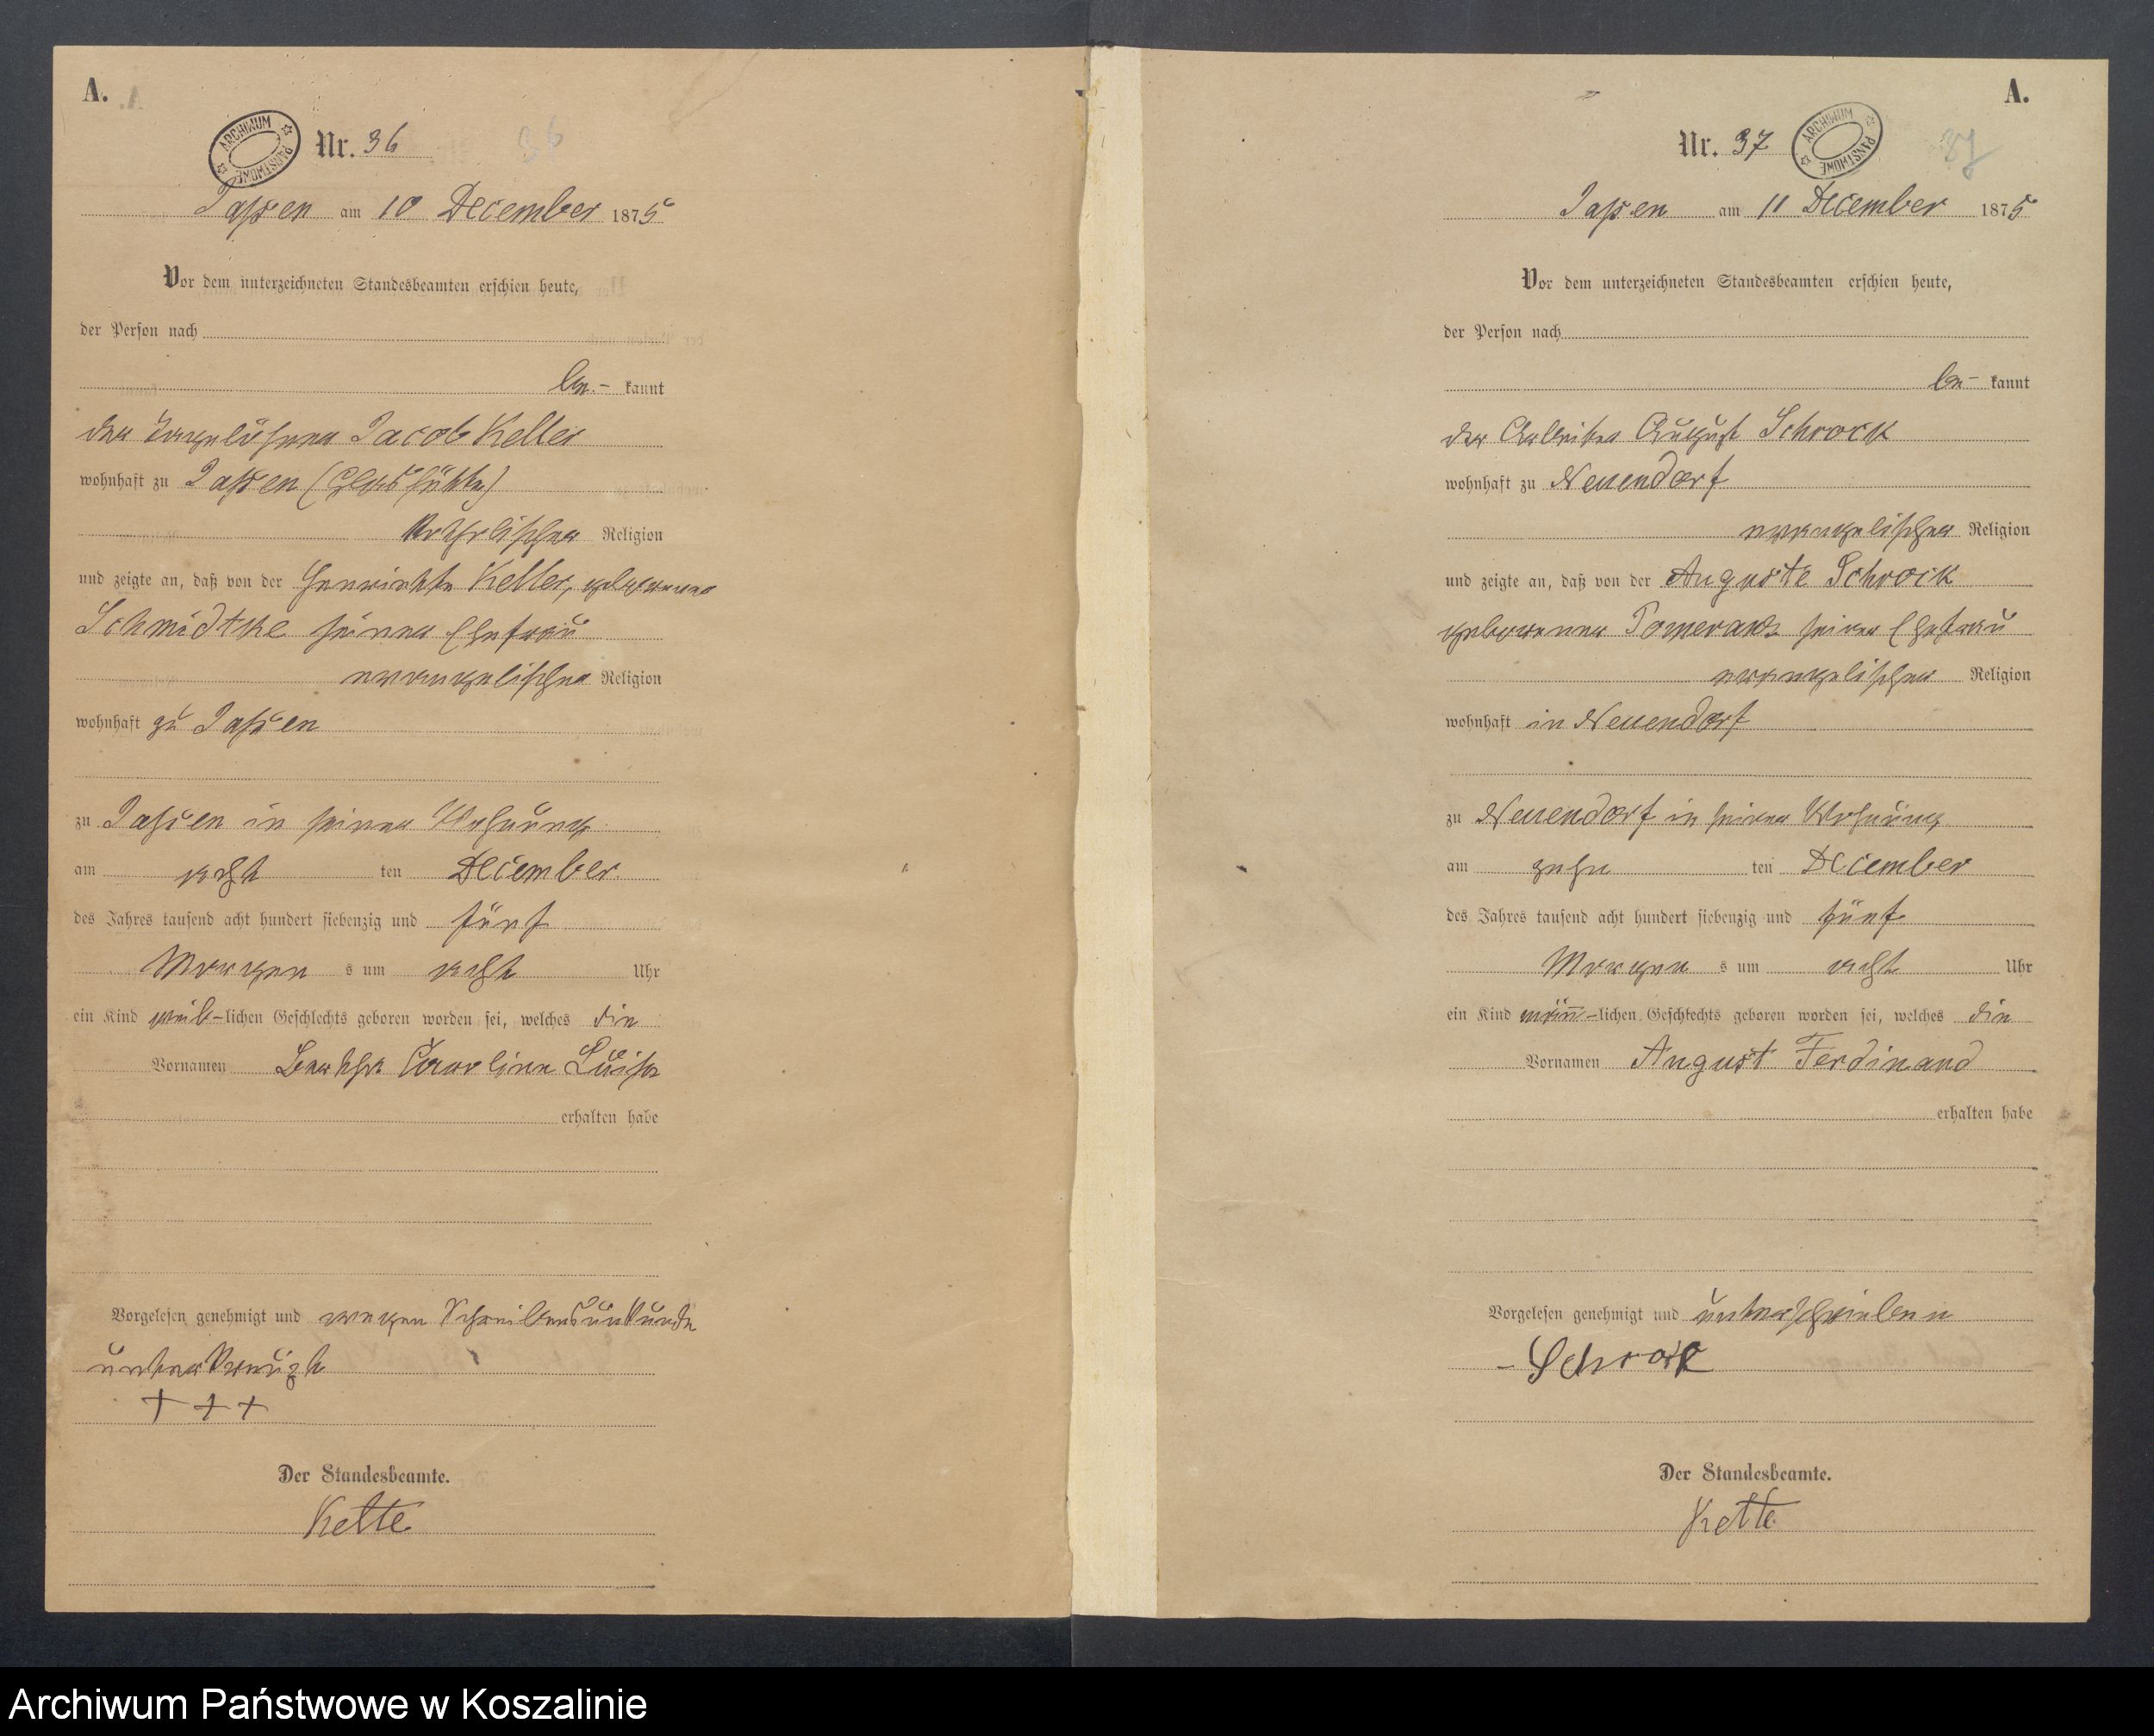 A.
ARCHIWUM PAŃSTWOWE
Nr. 36
36
Jassen am 10 December 1875
Vor dem unterzeichneten Standesbeamten erschien heute,
der Person nach
be- kannt
der Tagelöhner Jacob Keller
wohnhaft zu Jassen (Glashütte)
katholischer Religion
und zeigte an, daß von der Henriette Keller, geborenen
Schmidtke seiner Ehefrau
evangelischer Religion
wohnhaft zu Jassen
zu Jassen in seiner Wohnung
am acht ten December
des Jahres tausend acht hundert siebenzig und fünf
Morgens um acht Uhr
ein Kind weib-lichen Geschlechts geboren worden sei, welches die
Vornamen Bertha Caroline Luise
erhalten habe
Vorgelesen genehmigt und wegen Schreibensunkunde
unterkreuzt
+ + +
Der Standesbeamte.
Kette
A.
Nr. 37
ARCHIWUM PAŃSTWOWE
37
Jassen am 11 December 1875
Vor dem unterzeichneten Standesbeamten erschien heute,
der Person nach
be- kannt
der Arbeiter August Schrock
wohnhaft zu Neuendorf
evangelischer Religion
und zeigte an, daß von der Auguste Schrock
geborenen Pomerank seiner Ehefrau
evangelischer Religion
wohnhaft in Neuendorf
zu Neuendorf in seiner Wohnung
am zehn ten December
des Jahres tausend acht hundert siebenzig und fünf
Morgens um acht Uhr
ein Kind männ-lichen Geschlechts geboren worden sei, welches die
Vornamen August Ferdinand
erhalten habe
Vorgelesen genehmigt und unterschrieben
Schrock
Der Standesbeamte.
Kette
Archiwum Państwowe w Koszalinie